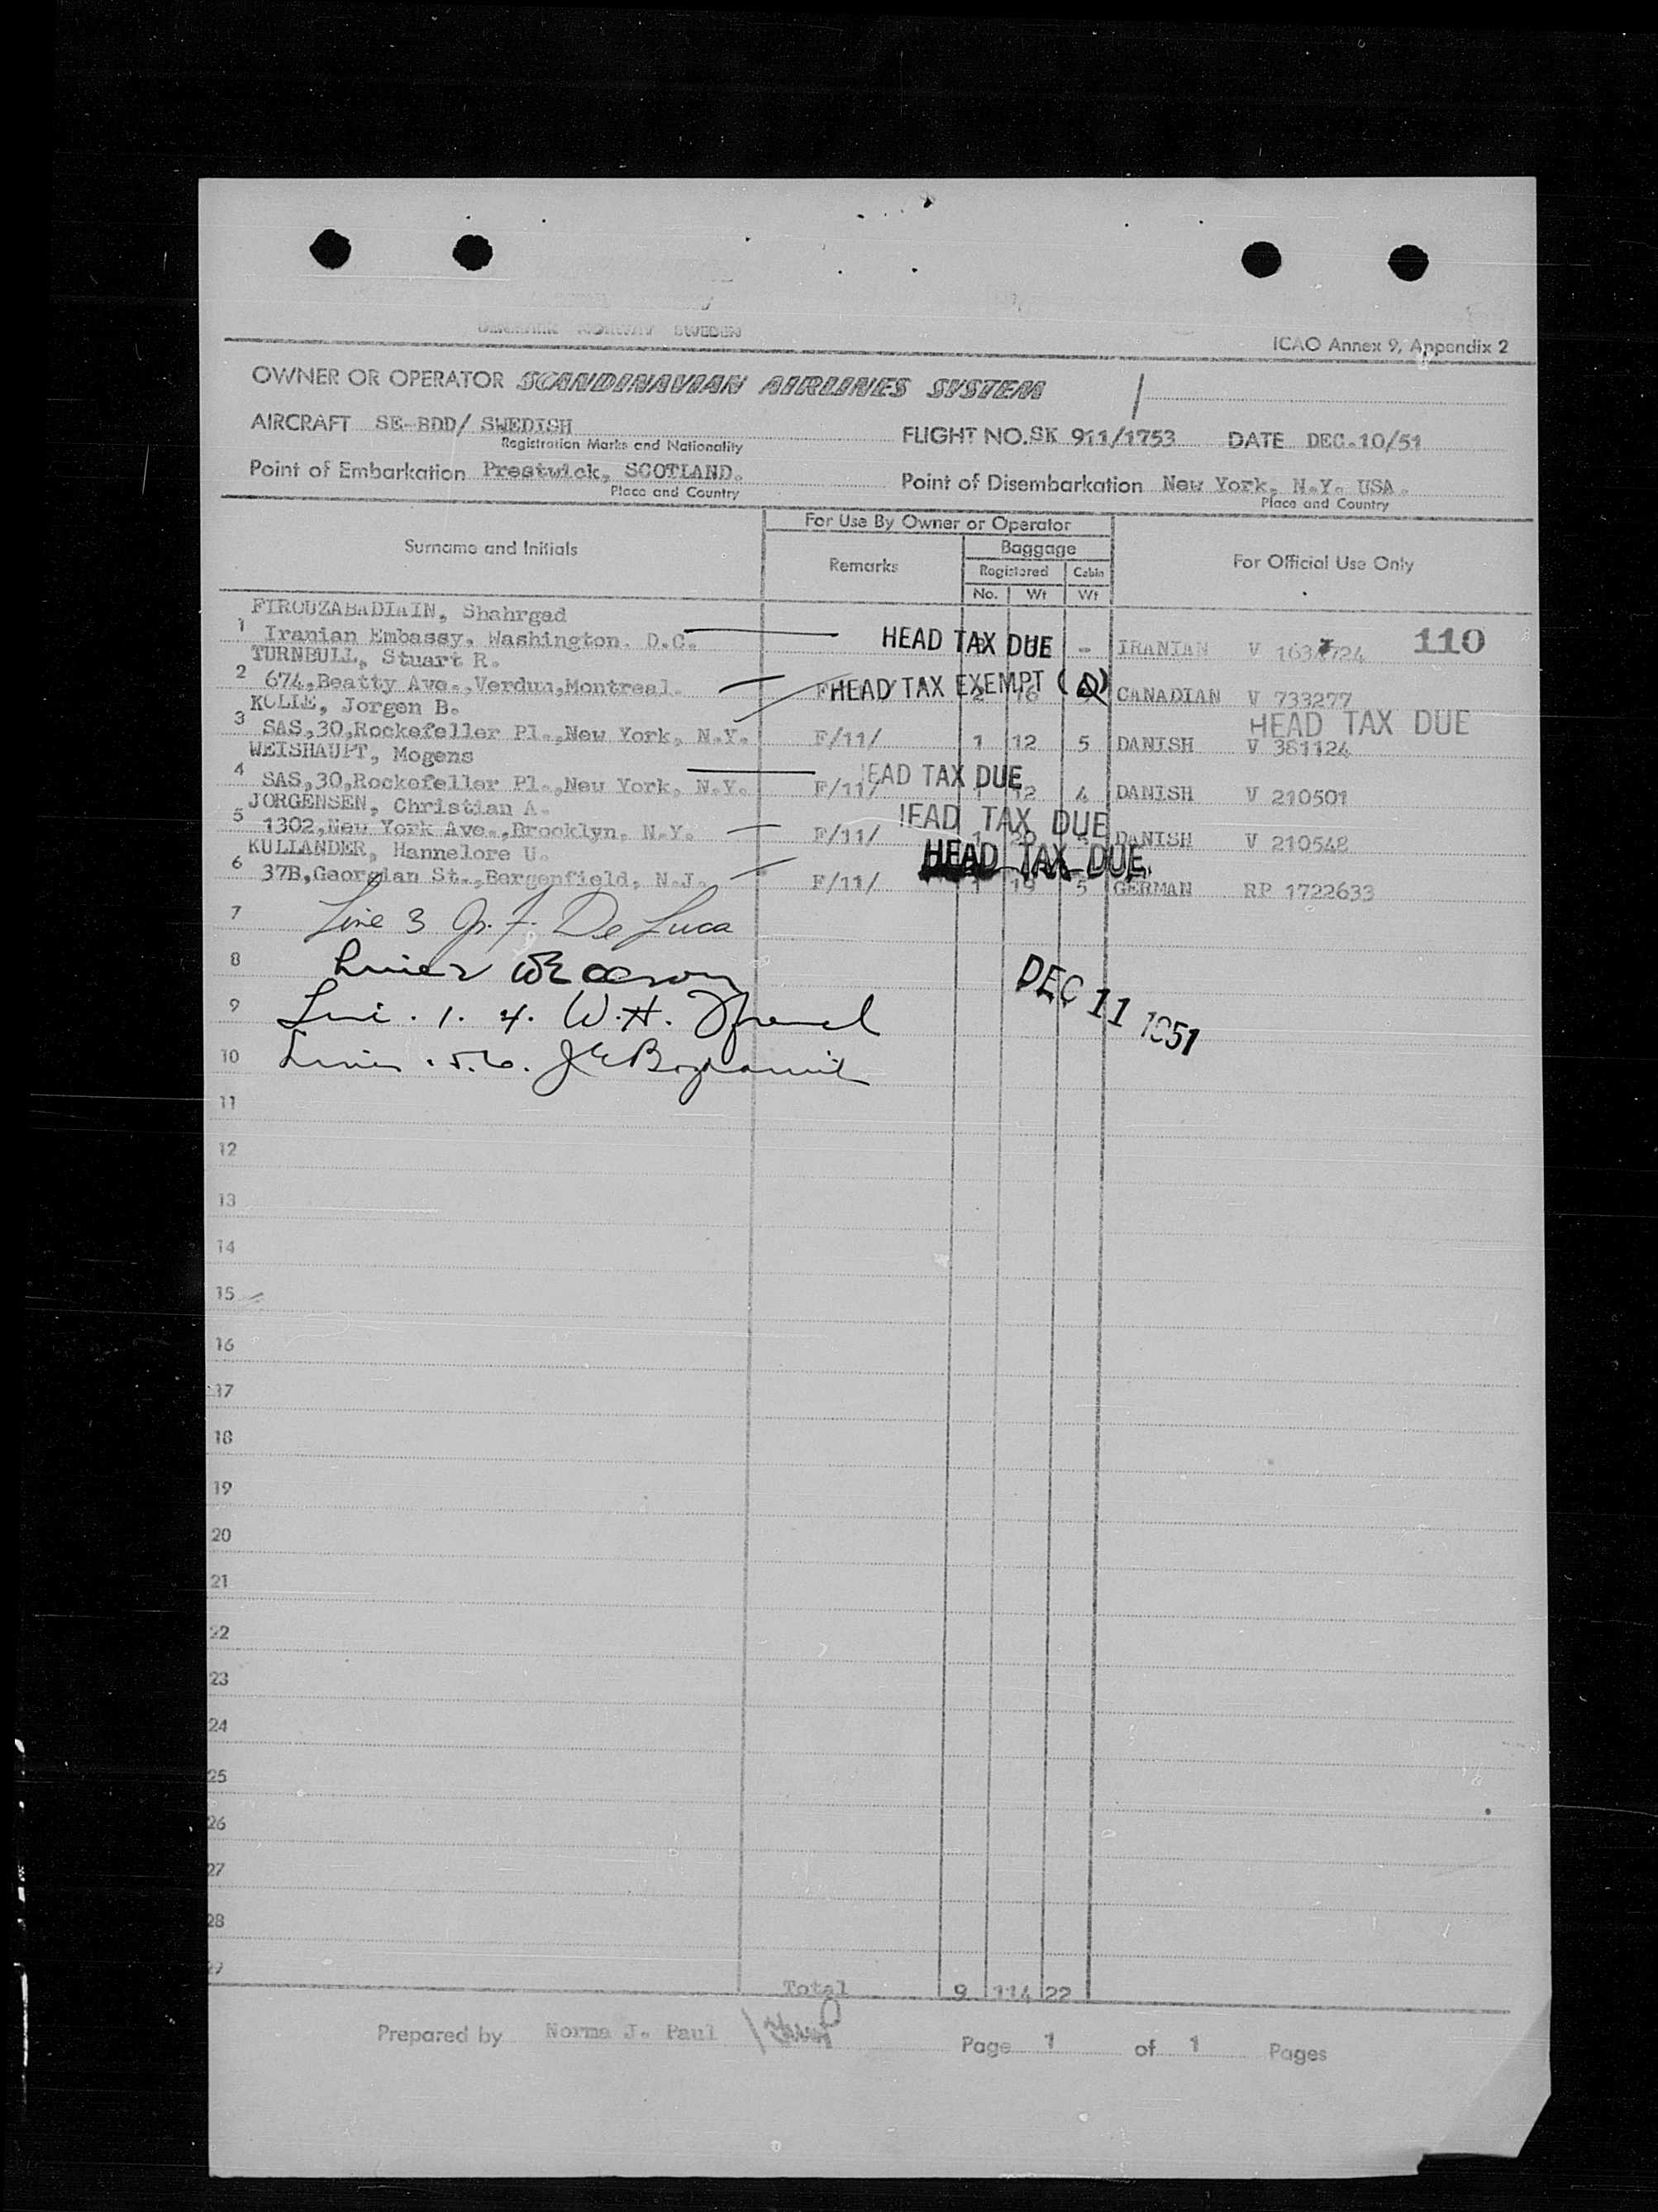 DENMARK NORWAY SWEDEN
ICAO Annex 9, Appendix 2
OWNER OR OPERATOR SCANDINAVIAN AIRLINES SYSTEM
AIRCRAFT SE-BDD/ SWEDISH FLIGHT NO. SK 911/1753 DATE DEC.10/51
Registration Marks and Nationality
Point of Embarkation Prestwick, SCOTLAND. Point of Disembarkation New York, N.Y. USA.
Place and Country Place and Country
For Use By Owner or Operator
Surname and Initials Remarks Baggage For Official Use Only
Registered Cabin
No. Wt Wt
FIROUZABADIAIN, Shahrgad
1 Iranian Embassy, Washington. D.C. HEAD TAX DUE - IRANIAN V 163 724 110
TURNBULL, Stuart R.
2 674,Beatty Ave.,Verdun,Montreal. HEAD TAX EXEMPT ( ) 2 16 CANADIAN V 733277
KOLLE, Jorgen B. HEAD TAX DUE
3 SAS,30,Rockefeller Pl.,New York, N.Y. F/11/ 1 12 5 DANISH V 381124
WEISHAUPT, Mogens
4 SAS,30,Rockefeller Pl.,New York, N.Y. F/11/ HEAD TAX DUE 1 12 4 DANISH V 210501
JORGENSEN, Christian A. HEAD TAX DUE
5 1302,New York Ave.,Brooklyn, N.Y. F/11/ 1 20 DANISH V 210548
KULLANDER, Hannelore U. HEAD TAX DUE
6 37B,Georgian St.,Bergenfield, N.J. F/11/ 1 19 5 GERMAN RP 1722633
7 Line 3 De Luca
8
9 1. 4. W.H.
10 5.6.
DEC 11 1951
11
12
13
14
15
16
17
18
19
20
21
22
23
24
25
26
27
28
Total 9 114 22
Prepared by Norma J. Paul Page 1 of 1 Pages